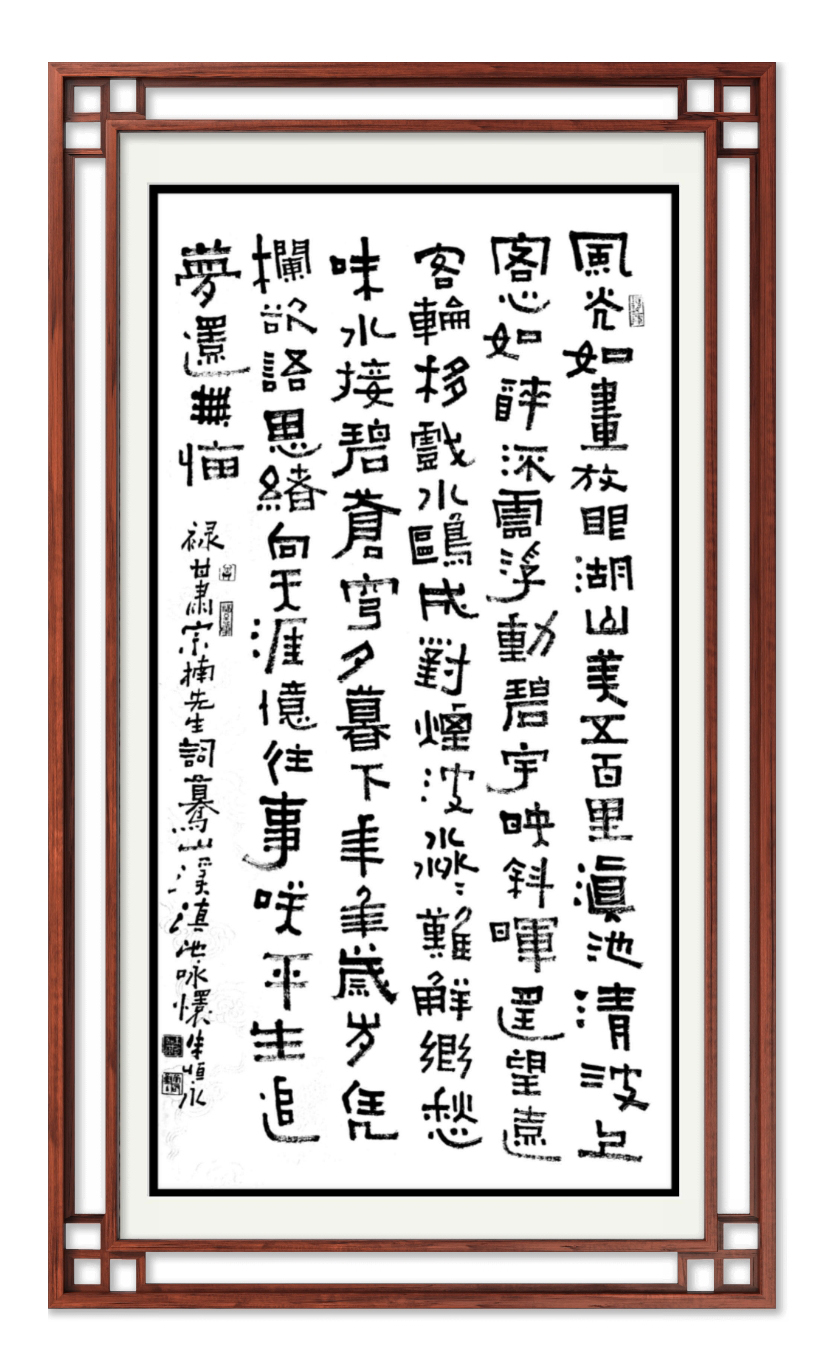 風光如畫放眼湖山美五百里滇池清波上
客心如醉深浮動碧宇映斜暉遥望遠
客輪移戲水鷗成對煙波淼〻難解鄉愁
味水接碧蒼穹夕暮下年年歲歲凭
欄欲語思緒向天涯憶往事咲平生追
夢還無悔
禄甘肅宗楠先生詞驀山溪滇池咏懷朱恒永